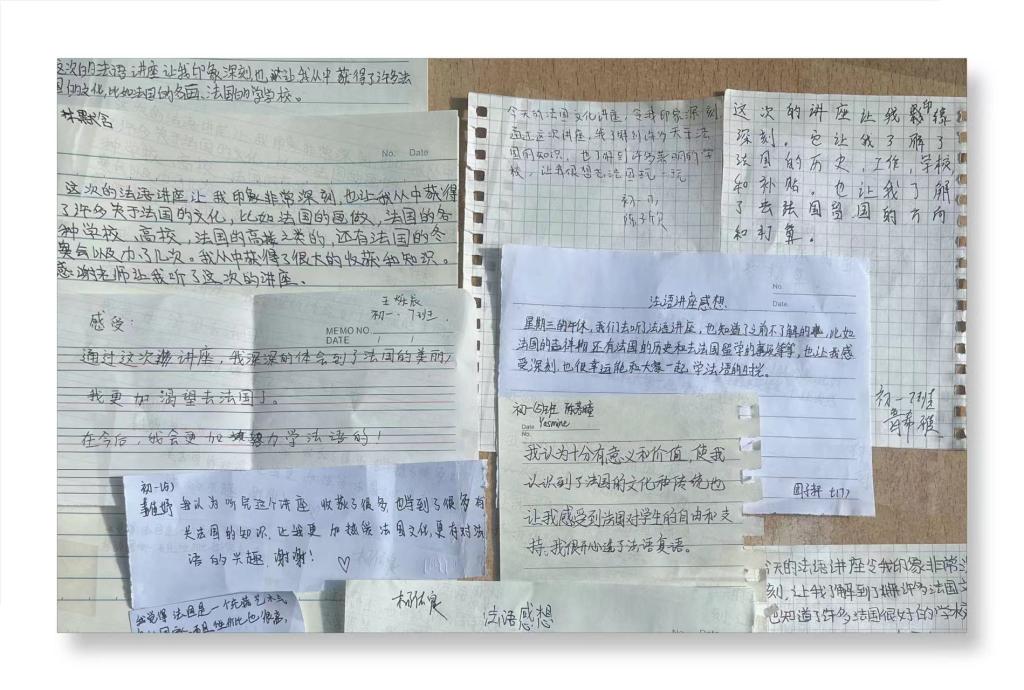 这次的法语讲座让我印象深刻,也让我从中获得了许多法
国的文化,比如法国的
法国的学校。
林默含
No. Date
这次的法语讲座让我印象非常深刻,也让我从中获得
了许多关于法国的文化,比如法国的画做,法国的各
种学校,高校,法国的高楼之类的,还有法国的冬
奥会以及办了几次。我从中获得了很大的收获和知识。
感谢老师让我听了这次的讲座。
王烁辰
初一·7班
感受:
MEMO NO.
DATE / /
通过这次讲座,我深深的体会到了法国的美丽,
我更加渴望去法国了。
在今后,我会更加努力学法语的!
初一(6)
我认为听完这个讲座,收获了很多,也学到了很多有
关法国的知识,让我更加热爱法国文化,更有对法
语的兴趣,谢谢!
我觉得法国是一个充满艺术气
今天的法国文化讲座,令我印象深刻
通过这次讲座,我了解到许多关于法
国的知识,也了解到许多美丽的学
校,让我很想去法国玩一玩
这次的讲座让我印象
深刻。它让我了解了
法国的历史,工作,学校
和补贴。也让我了解
了去法国留国的方向
和打算。
初一7班
No.
Date.
法语讲座感想
星期三的午休,我们去听法语讲座,也知道了之前不了解的事,比如
法国的吉祥物还有法国的历史和去法国留学的事项等等,也让我感
受深刻,也很幸运能和大家一起学法语的时光。
初一(5)班
Date Yasmine
No.
我认为十分有意义和价值,使我
认识到了法国的文化和传统也
让我感受到法国对学生的自由和支
持,我很开心选了法语复语。
法语感想
No. Date
今天的法语讲座令我印象非常深
刻,让我了解到了许多法国文
也知道了许多法国很好的学校